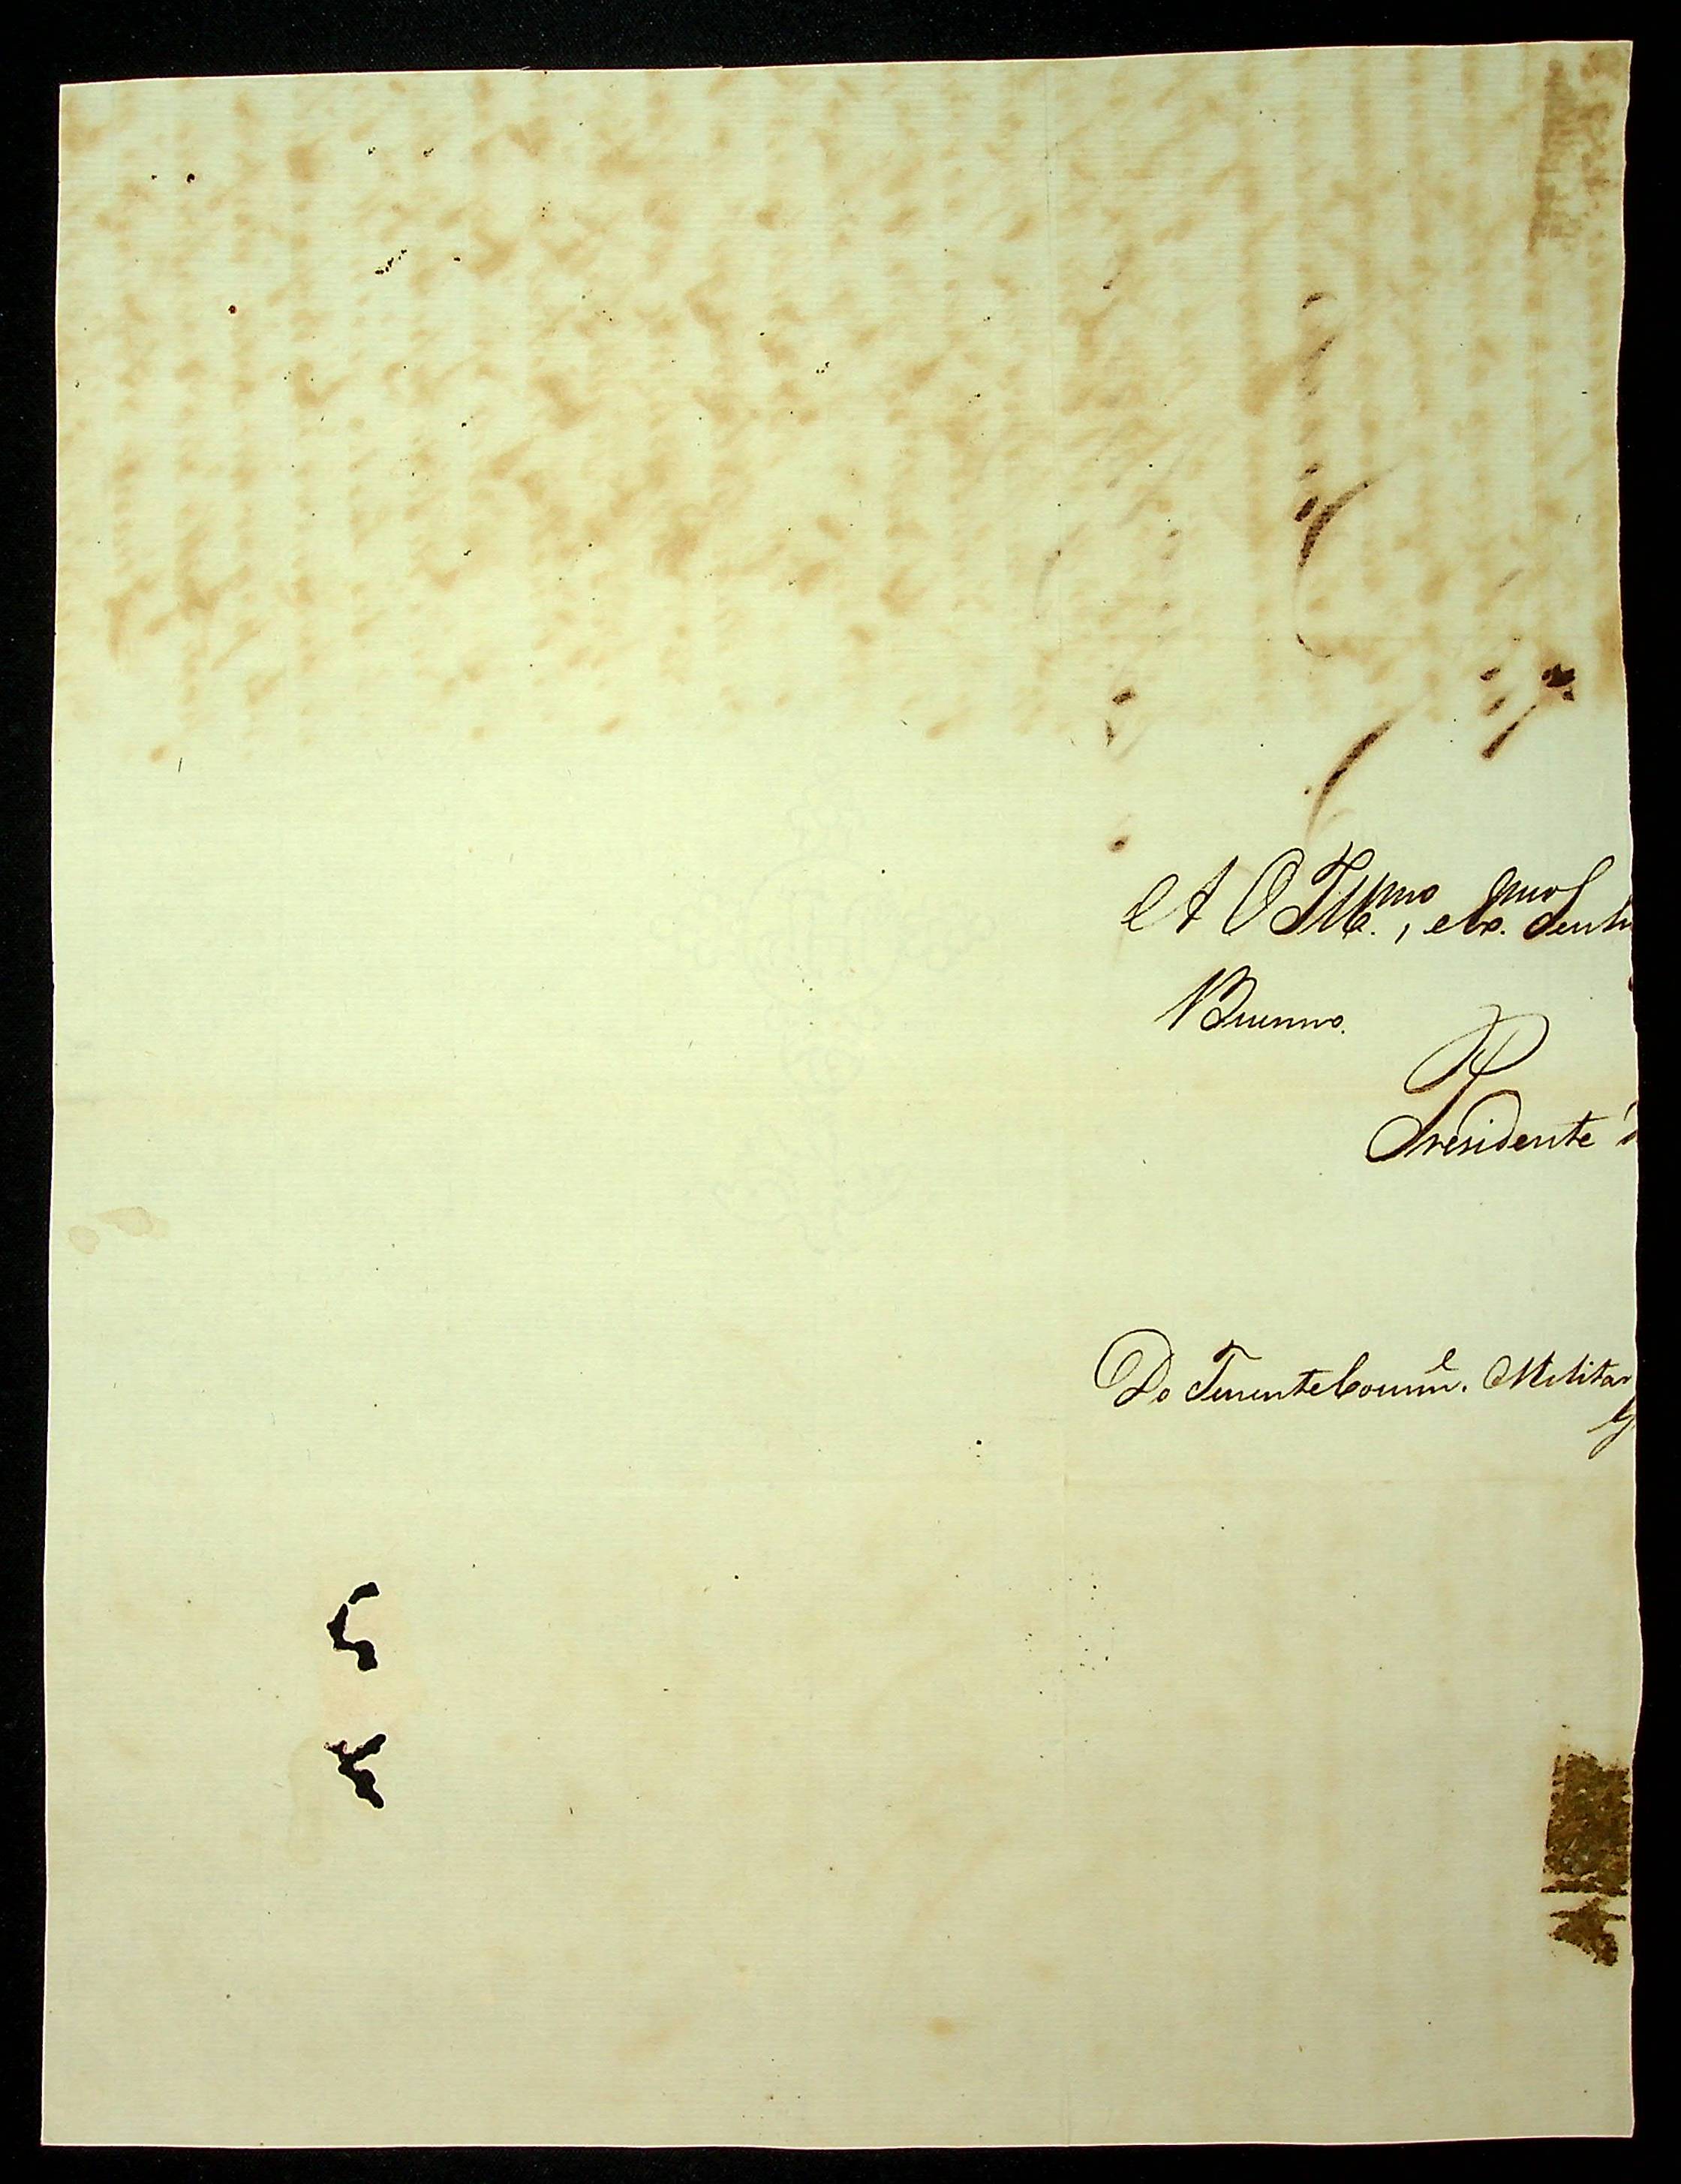 A O Ill.mo, e Ex.mo Senho
Buenno.
P
Presidente d
Do Tenente Comm.e Militar